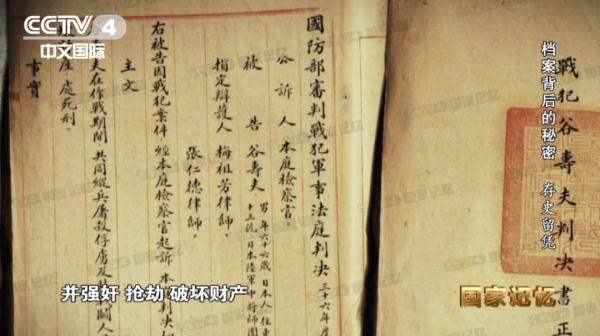 CCTV 4
中文国际
戰犯谷壽夫判決書正
档案背后的秘密 存史留凭
國防部審判戰犯軍事法庭判決 三十六年度
公訴人 本庭檢察官
被告 谷壽夫 男年六十六歲日本人住
十三號日本陸軍中將師團
指定辯護人 梅祖芳律師。
張仁德律師。
右被告因戰犯案件經本庭檢察官起訴本
主文
夫在作戰期間共同縱兵屠殺俘虜及
處死刑。
事實
并强奸 抢劫 破坏财产
国家记忆